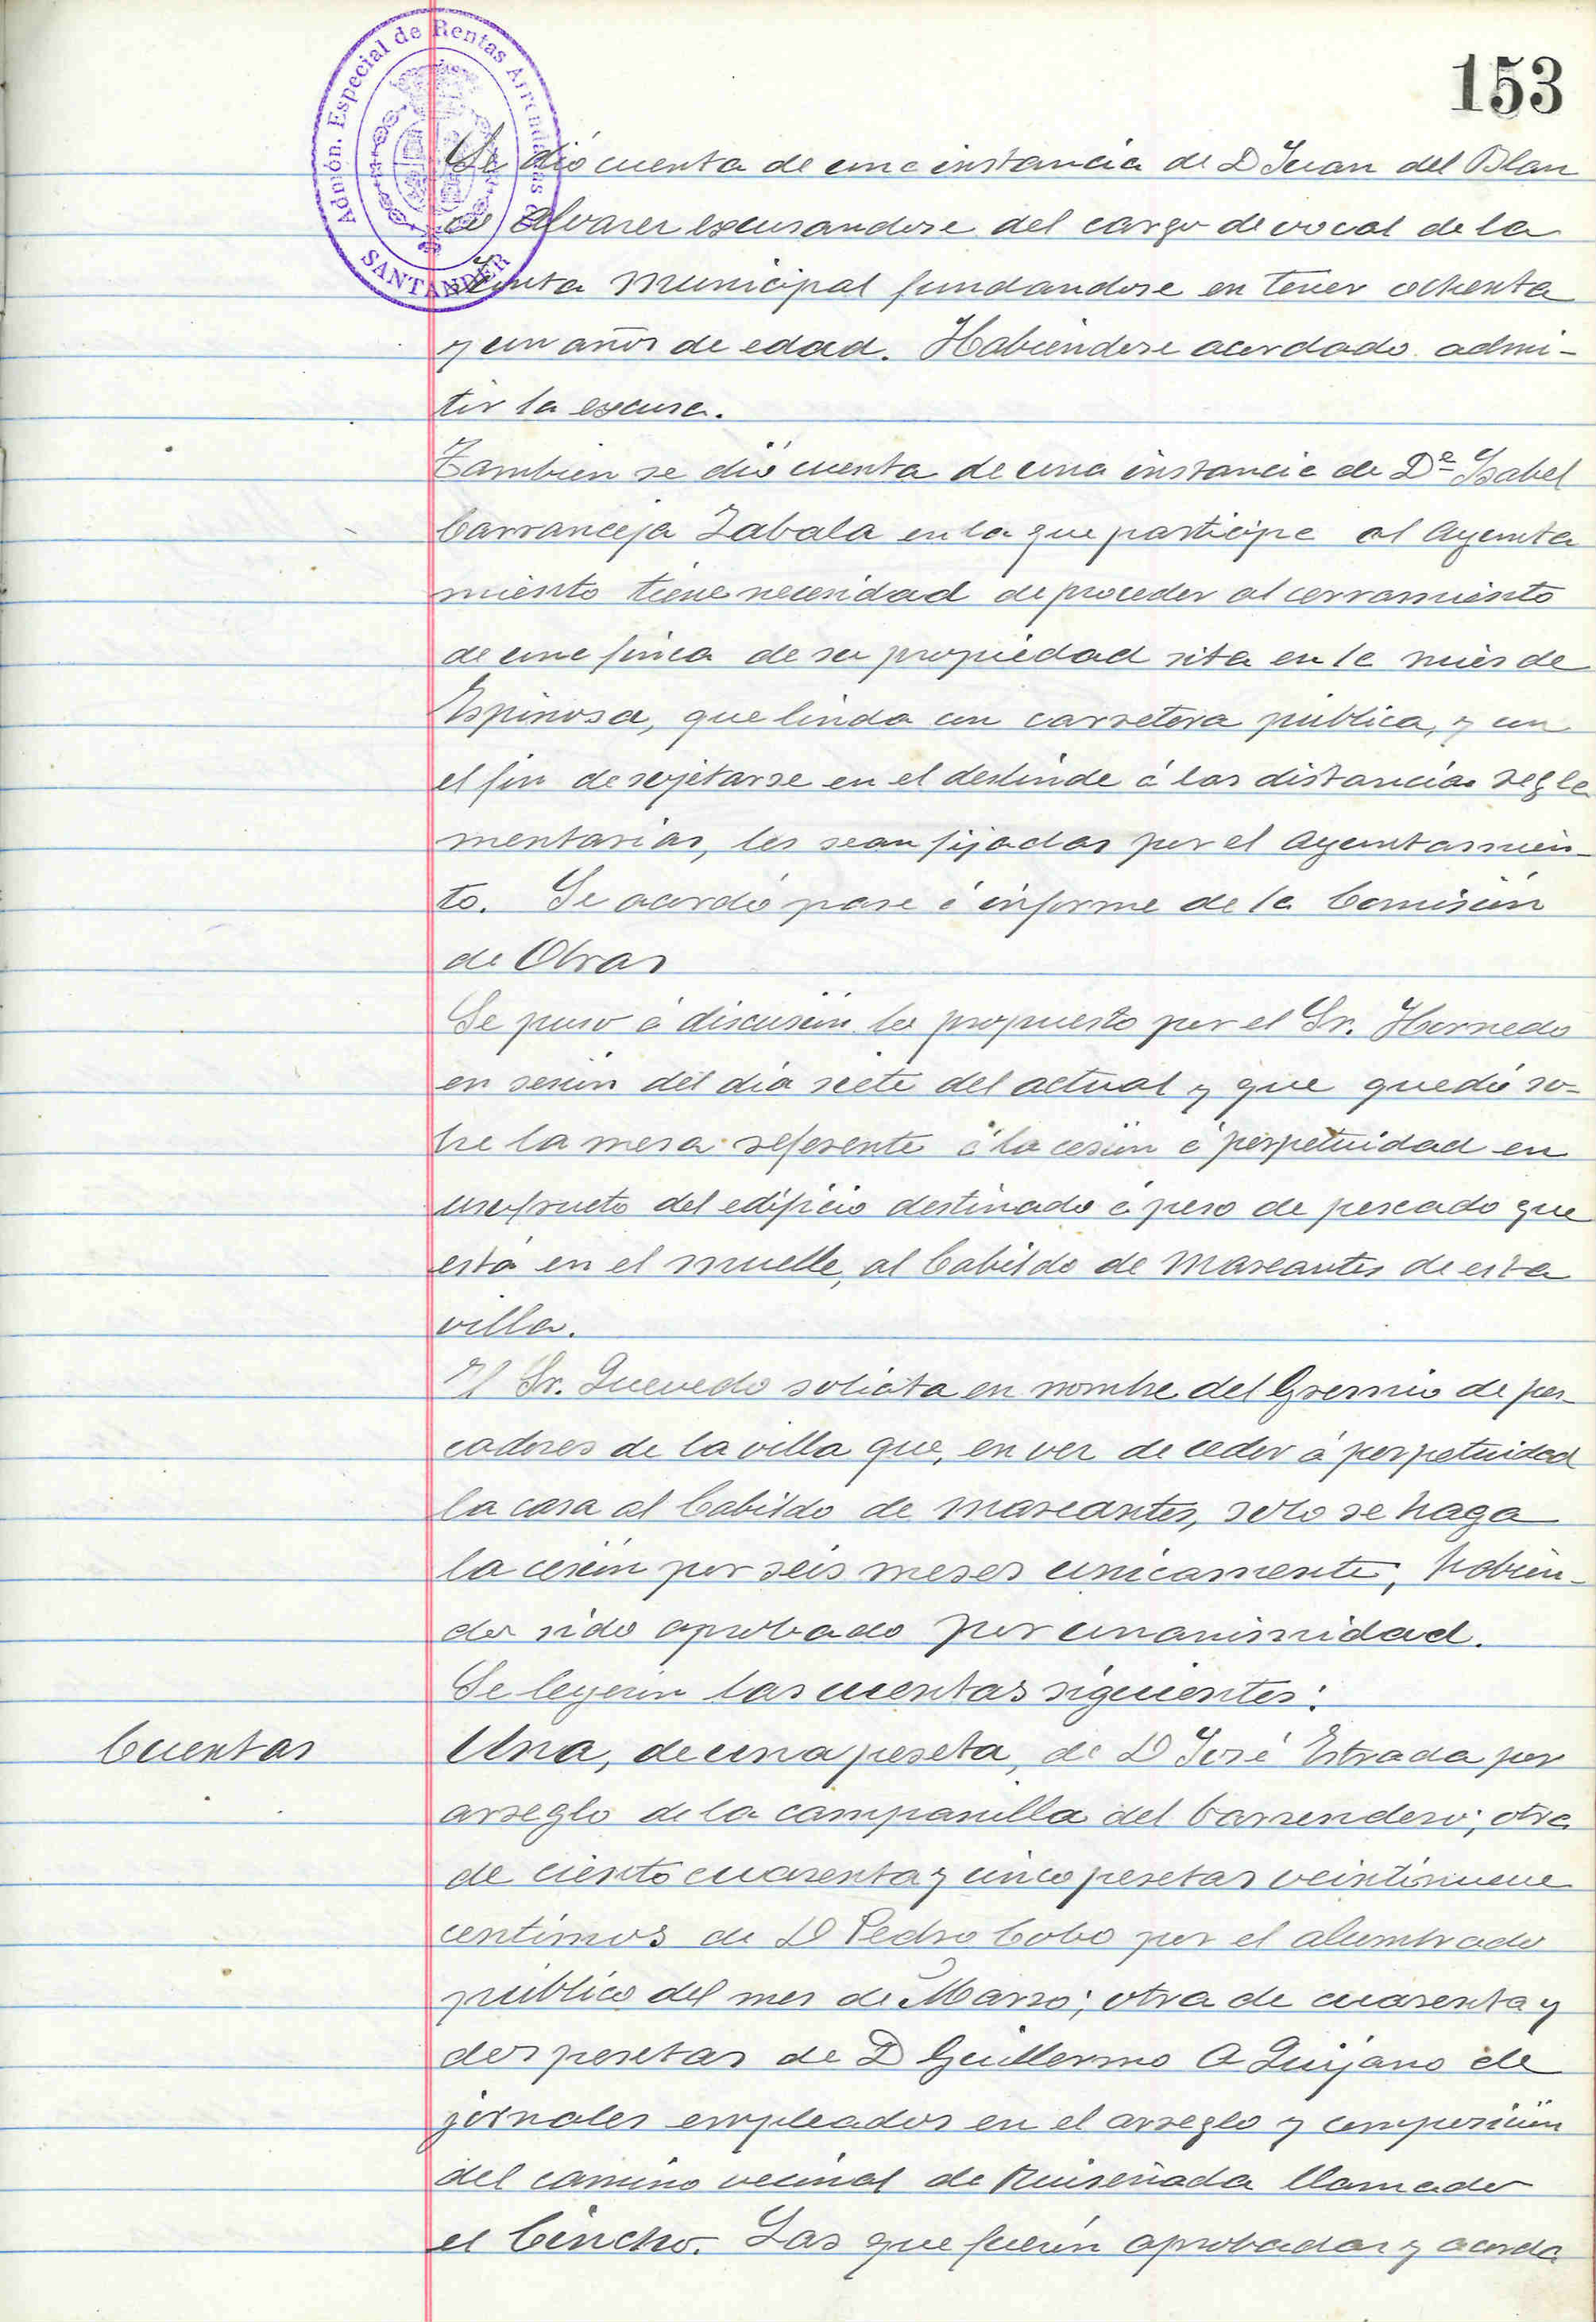 153
Admón. Especial de Rentas Arrendadas de
SANTANDER
Se dió cuenta de una instancia de D Juan del Blan
co Alvarez escusandose del cargo de vocal de la
Junta Municipal fundandose en tener ochenta
y un años de edad. Habiendose acordado admi-
tir la escusa.
Tambien se dió cuenta de una instancia de Dª Isabel
Carranceja Zabala en la que participa al Ayunta
miento tiene necesidad de proceder al cerramiento
de una finca de su propiedad sita en la mies de
Espinosa, que linda con carretera pública, y con
el fin de sujetarse en el deslinde á las distancias regla
mentarias, les sean fijadas por el Ayuntamien-
to. Se acordó pase á informe de la Comisión
de Obras
Se puso á discusión lo propuesto por el Sr. Hornedo
en sesión del día siete del actual y que quedó so-
bre la mesa referente á la cesión á perpetuidad en
usufructo del edificio destinado á peso de pescado que
está en el muelle, al Cabildo de Mareantes de esta
villa.
El Sr. Quevedo solicita en nombre del Gremio de pes-
cadores de la villa que, en vez de ceder á perpetuidad
la casa al Cabildo de Mareantes, solo se haga
la cesión por seis meses unicamente, habien-
do sido aprobado por unanimidad.
Se leyerón las cuentas siguientes:
Cuentas
Una, de una peseta, de D José Estrada por
arreglo de la campanilla del barrendero; otra
de ciento cuarenta y cinco pesetas veintinueve
centimos de D Pedro Cobo por el alumbrado
público del mes de Marzo; otra de cuarenta y
dos pesetas de D Guillermo A Quijano de
jornales empleados en el arreglo y composición
del camino vecinal de Ruiseñada llamado
el Cincho. Las que fuerón aprobadas y acorda